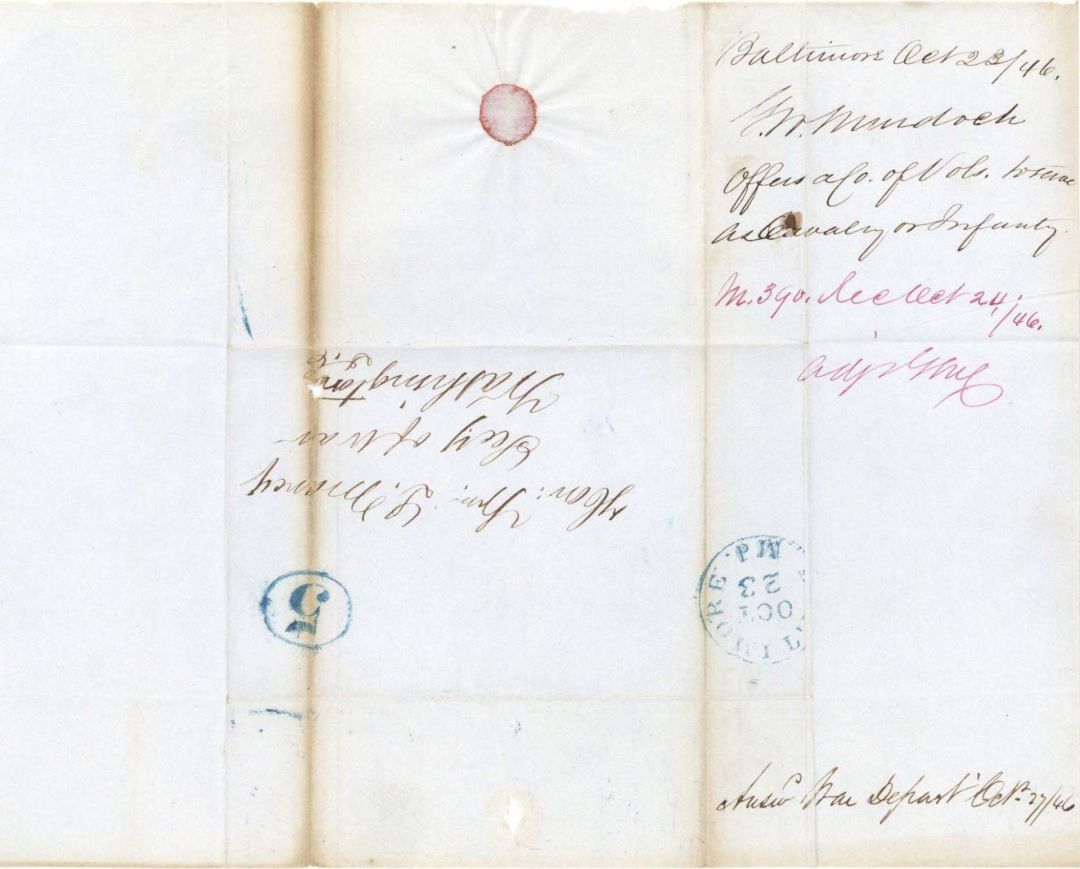 Baltimore Oct 23/46.
Murdoch
Offers a Co. of Vols. to serve
as Cavalry or Infantry.
M. 390. Rec Oct 24/46.
Adjt Genl
Hon: Wm. L. Marcy
Secy of War
Washington
5
BALTIMORE Md.
OCT
23
Answd War Depart Oct 27/46